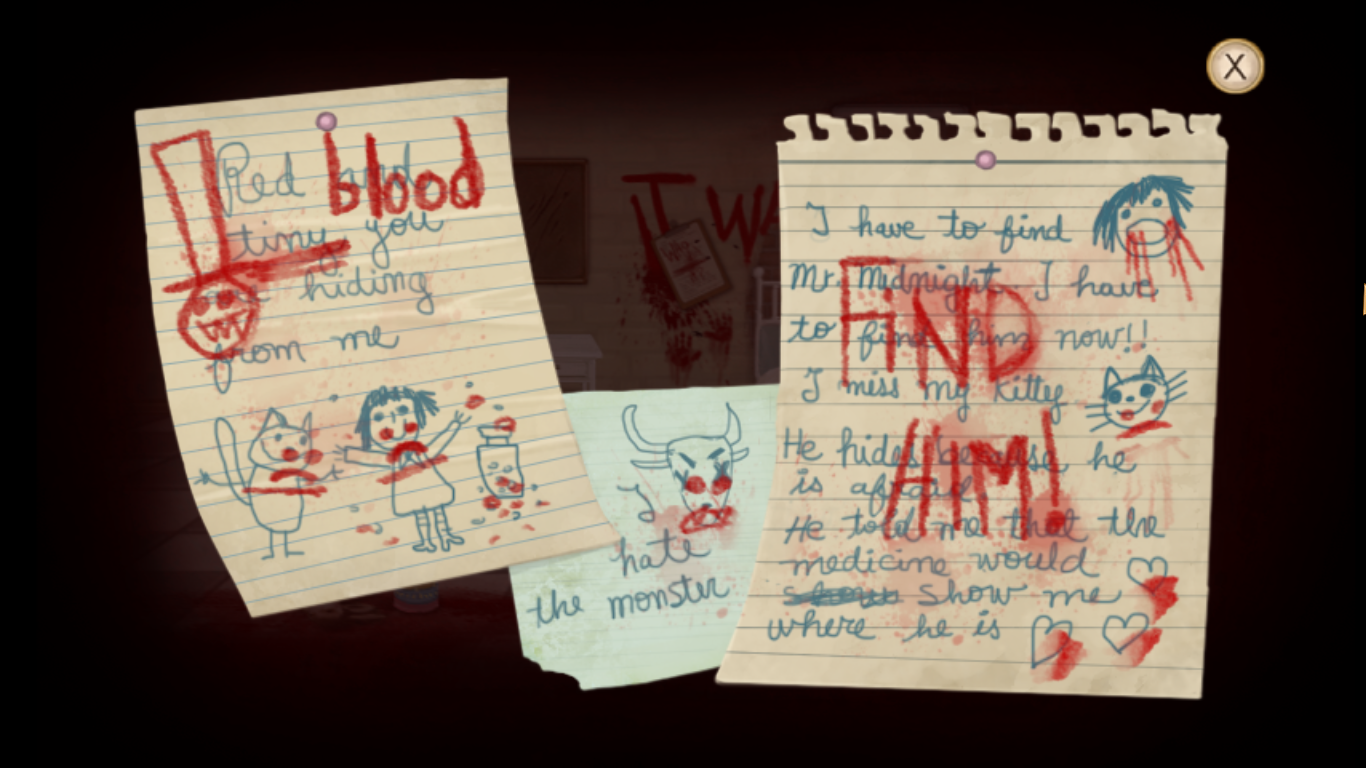 X
Red and
blood
tiny you
are hiding
from me
I WA
I
hate
the monster
I have to find
Mr. Midnight. I have
to find him now!!
FiND
I miss my kitty
He hides because he
HIM!
is afraid.
He told me that the
medicine would
show me
where he is